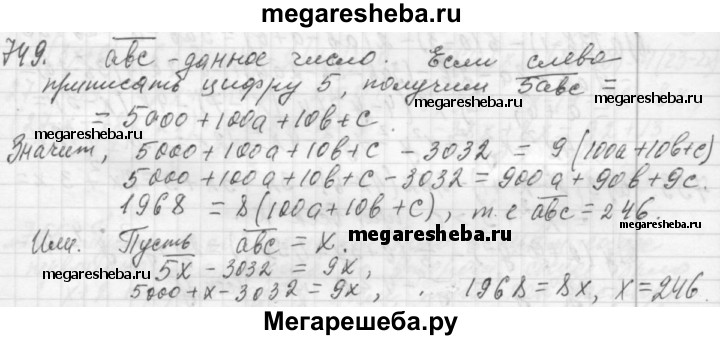 megaresheba.ru
749. abc - данное число. Если слева
приписать цифру 5, получим 5abc =
megaresheba.ru
megaresheba.ru
= 5000+100a+10b+c.
megaresheba.ru
Значит, 5000+100a+10b+c - 3032 = 9(100a+10b+c)
5000+100a+10b+c-3032=900a+90b+9c.
1968 = 8(100a+10b+c), т.е abc=246.
Или. Пусть abc = x.
megaresheba.ru
megaresheba.ru
5x - 3032 = 9x,
5000+x-3032=9x, 1968=8x, x=246.
Мегарешеба.ру